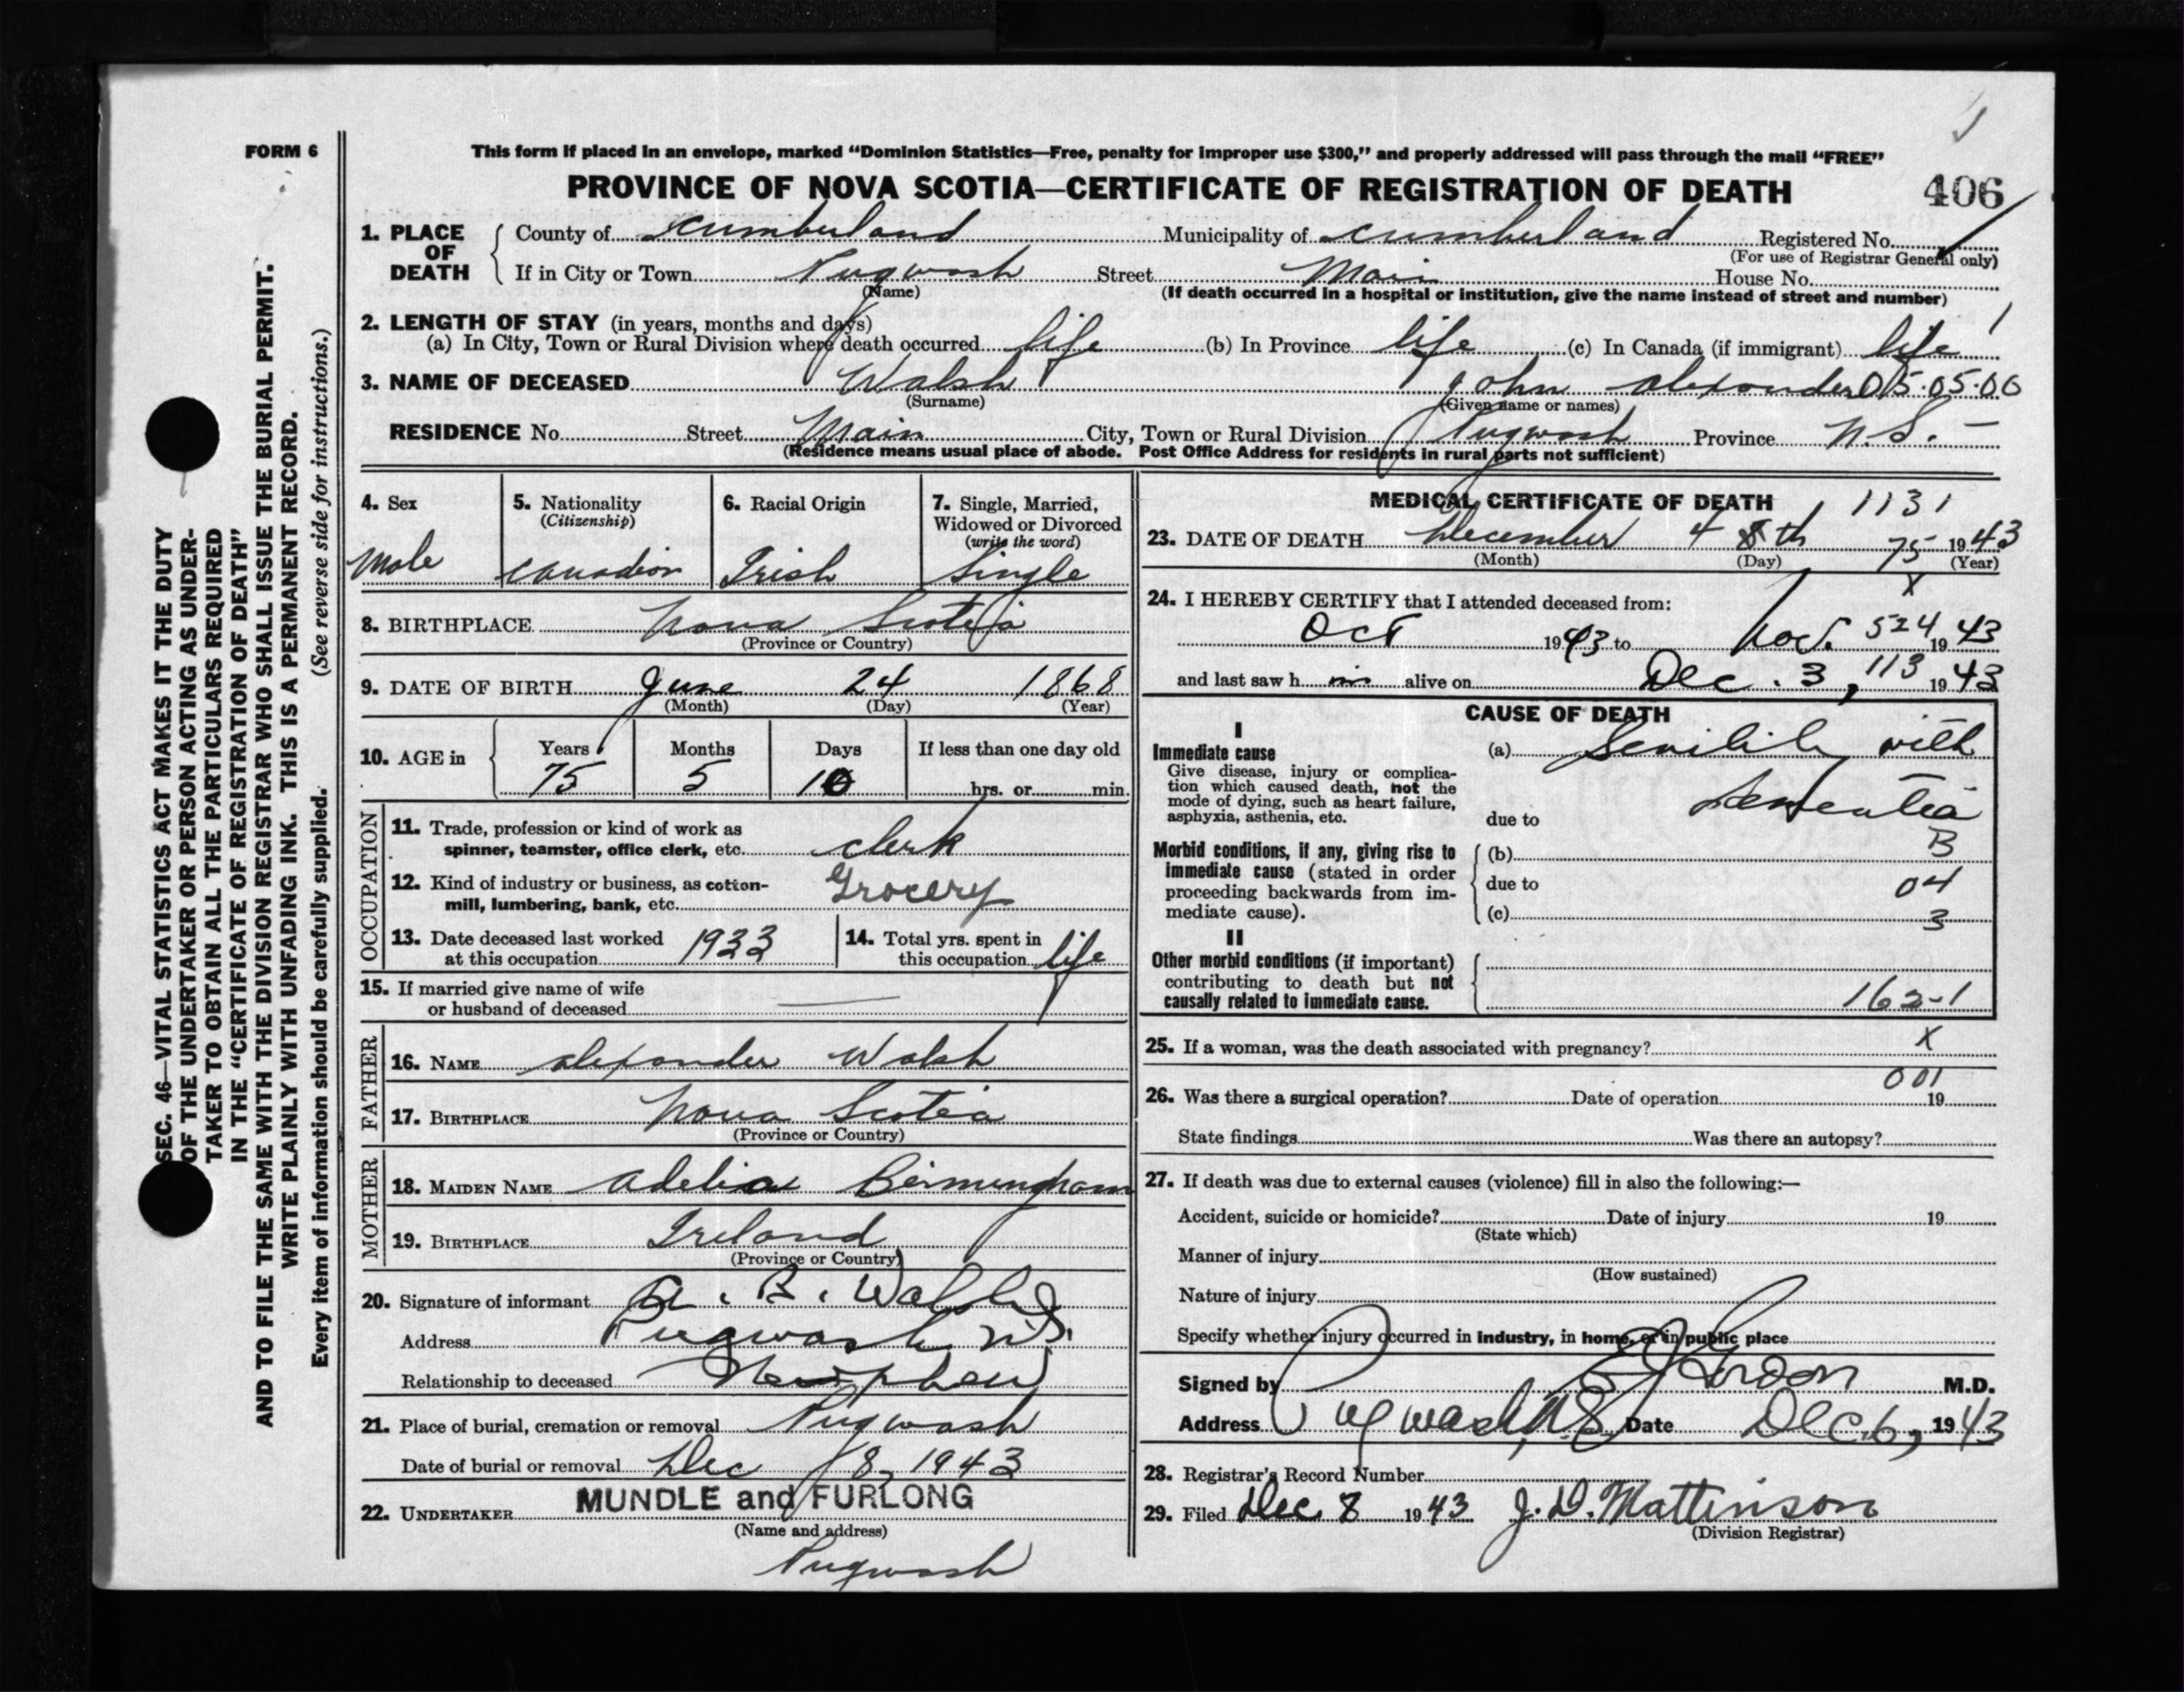 FORM 6
This form if placed in an envelope, marked "Dominion Statistics—Free, penalty for improper use $300," and properly addressed will pass through the mail "FREE"
PROVINCE OF NOVA SCOTIA—CERTIFICATE OF REGISTRATION OF DEATH 406
1. PLACE OF DEATH County of Cumberland Municipality of Cumberland Registered No.
(For use of Registrar General only)
If in City or Town Pugwash Street Main House No.
(Name) (If death occurred in a hospital or institution, give the name instead of street and number)
2. LENGTH OF STAY (in years, months and days)
(a) In City, Town or Rural Division where death occurred life (b) In Province life (c) In Canada (if immigrant) life
3. NAME OF DECEASED Walsh John Alexander 05.05.00
(Surname) (Given name or names)
RESIDENCE No. Street Main City, Town or Rural Division Pugwash Province N.S.
(Residence means usual place of abode. Post Office Address for residents in rural parts not sufficient)
4. Sex 5. Nationality (Citizenship) 6. Racial Origin 7. Single, Married, Widowed or Divorced (write the word)
Male Canadian Irish Single
8. BIRTHPLACE Nova Scotia
(Province or Country)
9. DATE OF BIRTH June 24 1868
(Month) (Day) (Year)
10. AGE in Years Months Days If less than one day old
75 5 10 hrs. or min.
OCCUPATION
11. Trade, profession or kind of work as
spinner, teamster, office clerk, etc. Clerk
12. Kind of industry or business, as cotton-
mill, lumbering, bank, etc. Grocery
13. Date deceased last worked
at this occupation 1933
14. Total yrs. spent in
this occupation life
15. If married give name of wife
or husband of deceased
FATHER
16. NAME Alexander Walsh
17. BIRTHPLACE Nova Scotia
(Province or Country)
MOTHER
18. MAIDEN NAME Adelia Birmingham
19. BIRTHPLACE Ireland
(Province or Country)
20. Signature of informant A. B. Walsh
Address Pugwash N.S.
Relationship to deceased Nephew
21. Place of burial, cremation or removal Pugwash
Date of burial or removal Dec 8, 1943
22. UNDERTAKER MUNDLE and FURLONG
(Name and address)
Pugwash
MEDICAL CERTIFICATE OF DEATH 1131
23. DATE OF DEATH December 4 8th 75 1943
(Month) (Day) (Year)
X
24. I HEREBY CERTIFY that I attended deceased from:
Oct 1943 to Nov. 524 1943
and last saw h im alive on Dec. 3, 113 1943
CAUSE OF DEATH
I
Immediate cause (a) Senility with
Give disease, injury or complica-
tion which caused death, not the
mode of dying, such as heart failure,
asphyxia, asthenia, etc. due to Dementia
Morbid conditions, if any, giving rise to (b) B
immediate cause (stated in order
proceeding backwards from im- due to 04
mediate cause). (c) 3
II
Other morbid conditions (if important)
contributing to death but not
causally related to immediate cause. 162-1
25. If a woman, was the death associated with pregnancy? X
001
26. Was there a surgical operation? Date of operation 19
State findings Was there an autopsy?
27. If death was due to external causes (violence) fill in also the following:—
Accident, suicide or homicide? Date of injury 19
(State which)
Manner of injury
(How sustained)
Nature of injury
Specify whether injury occurred in industry, in home, or in public place
Signed by M.D.
Address Pugwash, N.S. Date Dec. 6, 1943
28. Registrar's Record Number
29. Filed Dec 8 1943 J. D. Mattinson
(Division Registrar)
SEC. 46—VITAL STATISTICS ACT MAKES IT THE DUTY
OF THE UNDERTAKER OR PERSON ACTING AS UNDER-
TAKER TO OBTAIN ALL THE PARTICULARS REQUIRED
IN THE "CERTIFICATE OF REGISTRATION OF DEATH"
AND TO FILE THE SAME WITH THE DIVISION REGISTRAR WHO SHALL ISSUE THE BURIAL PERMIT.
WRITE PLAINLY WITH UNFADING INK. THIS IS A PERMANENT RECORD.
Every item of information should be carefully supplied. (See reverse side for instructions.)